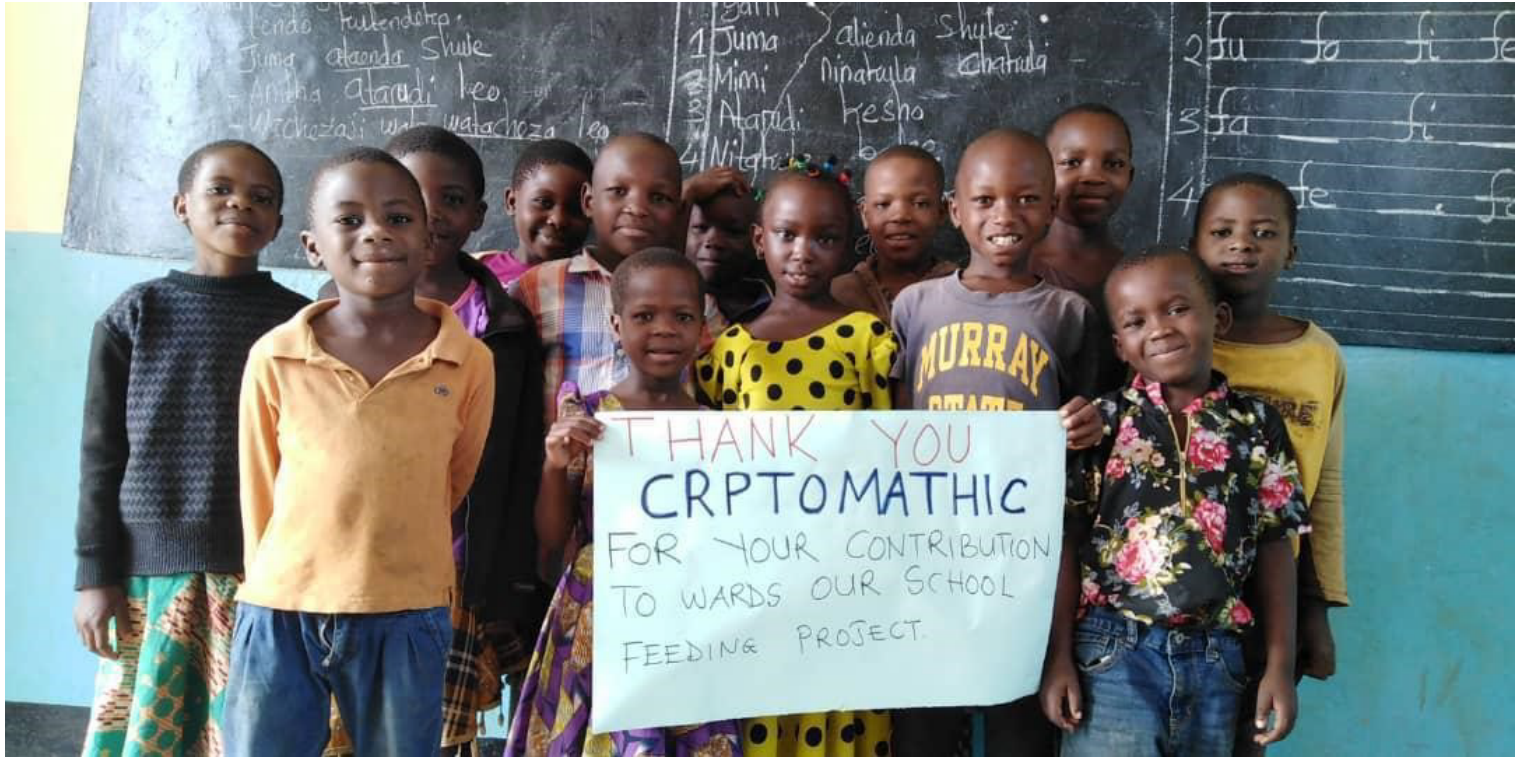 tendo kutendeka.
Juma ataenda Shule
- Amina atarudi leo
- Wachezaji watacheza leo
1 Juma alienda Shule
2 Mimi ninakula Chakula
3 Atarudi kesho
4
2 fu fo fi fe
3 fa __ fi
4 fe __
MURRAY
STATE
THANK YOU
CRPTOMATHIC
FOR YOUR CONTRIBUTION
TO WARDS OUR SCHOOL
FEEDING PROJECT.